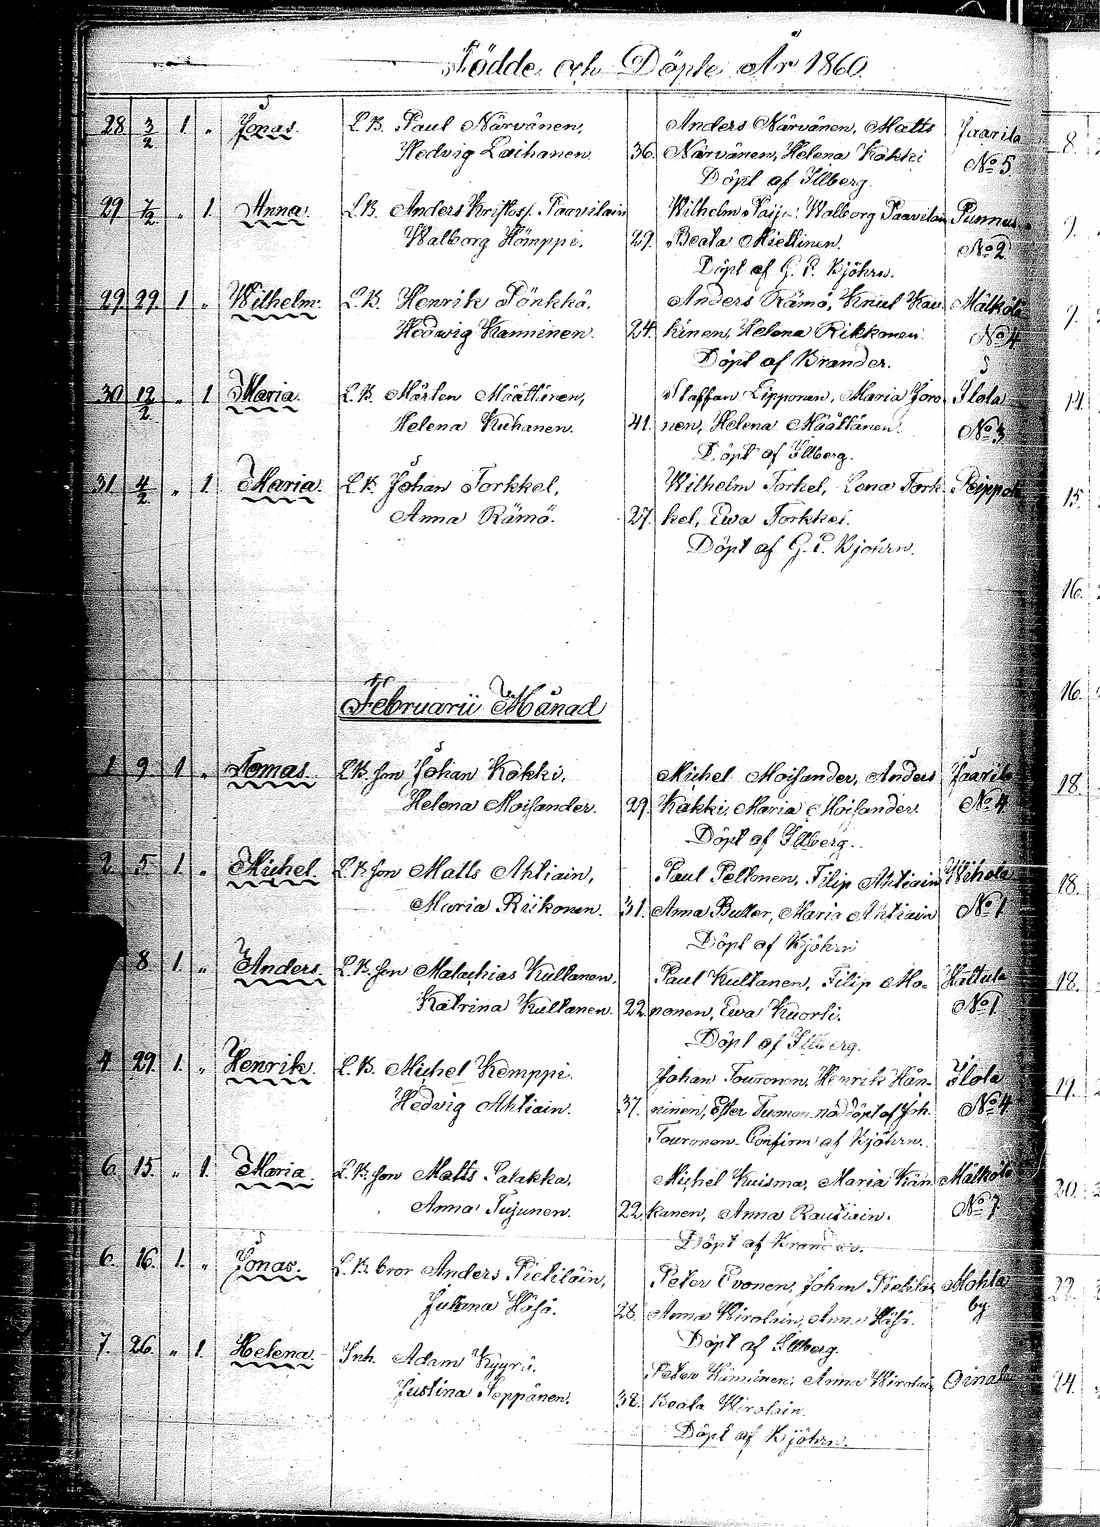 Födde och Döpte År 1860.
28 3/2 1 " Jonas. L.B. Paul Närvänen, Anders Närvänen, Matts Jaarila
Hedvig Laihanen. 36. Närvänen, Helena Kokki No 5.
Döpt af Illberg.
29 7/2 " 1. Anna. L.B. Anders Kristofs. Paavilain Wilhelm Paiju, Walborg Paavilain Punnus
Walborg Hömppi. 29. Beata Miettinen. No 2
Döpt af G. E. Bjöhrn.
29 29. 1 " Wilhelm. L.B. Henrik Pönkkä. Anders Rämö, Knut Kau- Mälkölä
Hedwig Kanninen. 24. kinen, Helena Rikkonen. No 4
Döpt af Brander.
30 12/2 " 1 Maria. L.B. Mårten Määttänen, Staffan Lipponen, Maria Joro- Ilola
Helena Kuhanen. 41. nen, Helena Määttänen. No 3
Döpt af Illberg.
31. 4/2 " 1. Maria. L.B. Johan Torkkel, Wilhelm Torkel, Lena Tork- Peippola
Anna Rämö. 27. kel, Ewa Torkkel.
Döpt af G. E. Bjöhrn.
Februarii Månad
1 9 1 " Tomas. L.B. son Johan Kokki, Michel Moisander, Anders Jaarila
Helena Moisander. 29. Kokki, Maria Moisander. No 4
Döpt af Illberg.
2. 5. 1. " Michel. L.B. son Matts Ahtiain, Paul Peltonen, Filip Ahtiain Wihola
Maria Riikonen. 31. Anna Butter, Maria Ahtiain No 1
Döpt af Bjöhrn
8. 1. " Anders. L.B. son Malachias Kultanen. Paul Kultanen, Filip Mo- Hattula
Katrina Kultanen. 22. nonen, Ewa Kuorti. No 1
Döpt af Illberg.
4 29. 1. " Henrik. L.B. Michel Kemppi. Johan Touronen, Henrik Hän- Ilola
Hedvig Ahtiain. 37. ninen, Ester Tumon. nöddöpt af Joh. No 4
Touronen. Confirm af Bjöhrn.
6. 15. " 1. Maria. L.B. son Matts Palakka, Michel Kuisma, Maria Kän- Mälkölä
Anna Tujunen. 22. kanen, Anna Rautiain. No 7
Döpt af Brander.
6. 16. 1. " Jonas. L.B. bror Anders Pietiläin, Peter Evonen, Johan Pietiläi, Mohla
Juliana Häsä. 28. Anna Wirolain, Anna Häsä. by
Döpt af Illberg.
7. 26. " 1. Helena. Inh. Adam Kyyrö. Peter Kinnunen. Anna Wirolain, Oinala
Justina Seppänen. 38. Beata Wirolain.
Döpt af Bjöhrn.